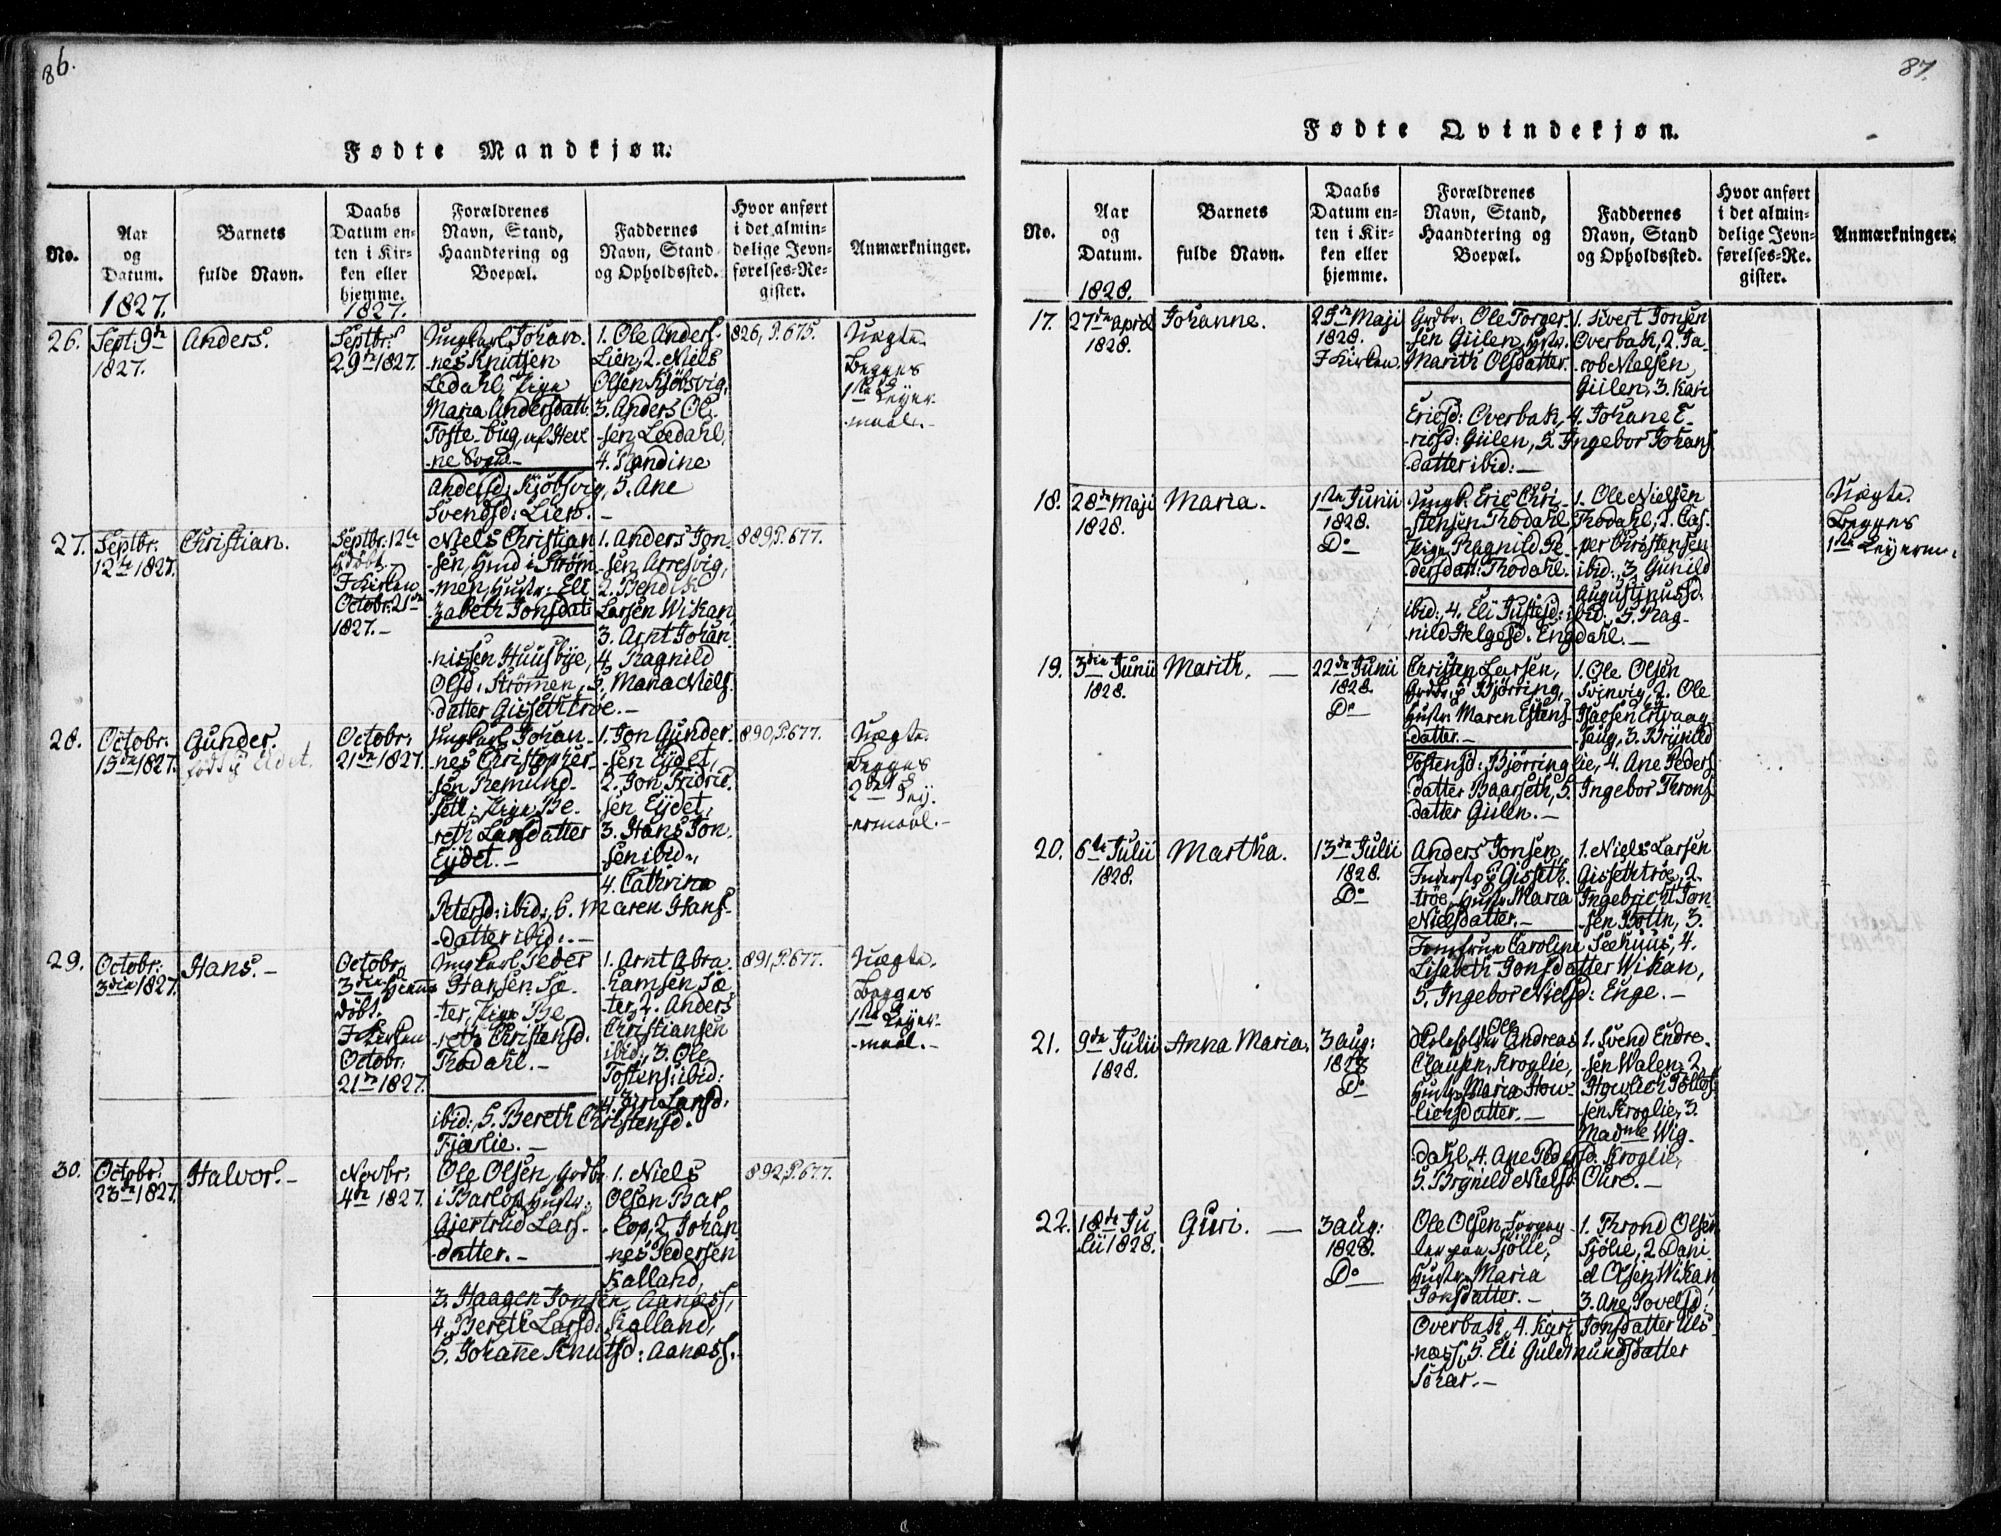 86.
Fødte Mandkjøn.
No.
Aar
og
Datum.
1827.
Barnets
fulde Navn.
Daabs
Datum en-
ten i Kir-
ken eller
hjemme.
1827.
Forældrenes
Navn, Stand,
Haandtering og
Boepæl.
Faddernes
Navn, Stand
og Opholdssted.
Hvor anført
i det almin-
delige Jevn-
førelses-Re-
gister.
Anmærkninger.
26.
Sept: 9de
1827.
Anders.
Septbr:
29de 1827.
Ungkarl Johan-
nes Knutsen
Ledahl, Pige
Maria Andersdatt:
Toste-bug, af Hev-
ne Sogn
1. Ole Anders.
Lien, 2. Niels
Olsen Kjöbsvig,
3. Anders Ol-
sen Leedahl,
4. Randine
Andersd: Kjöbsvig, 5. Ane
Svendsd: Lien. -
826, P. 675.
Uægte.
Begges
1ste Leyer-
-maal. -
27.
Septbr:
12te 1827.
Christian.
Septbr: 12te
hdöbt.
I Kirken
Octobr: 21de
1827. -
Niels Christian
-sen, Hmd i Ström-
men, Hustr: Eli-
zabeth Jonsdatt:
1. Anders Jon-
sen Arresvig,
2. Bendik
Larsen Wikan,
3. Arnt Johan-
-nissen Huusbye, 4. Ragnild
Olsd: Strömen, 5. Maria Niels-
datter Gissethtröe. -
889, P. 677.
28.
Octobr:
15de 1827.
Gunder.
född i Eidet.
Octobr:
21de 1827.
Ungkarl Johan-
nes Christopher-
sen Remmid-
Pige Be-
reth Larsdatter
Eydet. -
1. Jon Gunder-
-sen Eydet,
2. Jon Fridric-
sen Eydet,
3. Hans Jon-
sen ibid:,
4. Cathrina
Petersd: ibid:, 5. Maren Hans-
-datter ibid:. -
890, P. 677.
Uægte.
Begges
2det Ley-
-ermaal. -
29.
Octobr:
3die 1827.
Hans. -
Octobr:
3die hjemme
döbt.
I Kirken
Octobr:
21de 1827.
Ungkarl Peder
Hansen Sæ-
ter, Pige Be-
-reth Christensd.
Thodahl. -
1. Arnt Abra-
hamsen Sæ-
ter, 2. Anders
Christiansen
ibid:, 3. Ole
Tostens: ibid:
4. Siri Larsd.
ibid:, 5. Bereth Christensd.
Fjærlie. -
891, P. 677.
Uægte.
Begges
1ste Leyer-
-maal. -
30.
Octobr:
23de 1827.
Halvor. -
Novbr:
4de 1827.
Ole Olsen, Grdbr:
i Barlop, Hustr:
Giertrud Lars-
datter. -
1. Niels
Olsen Bar-
lop, 2. Johan-
-nes Pedersen
Kalland,
3. Haagen Jonsen Aanæss,
4. Bereth Larsd: Kalland,
5. Johanne Knutsd: Aanæss. -
892, P. 677.
87.
Fødte Qvindekjøn.
No.
Aar
og
Datum.
1828.
Barnets
fulde Navn.
Daabs
Datum en-
ten i Kir-
ken eller
hjemme.
Forældrenes
Navn, Stand,
Haandtering og
Boepæl.
Faddernes
Navn, Stand
og Opholdssted.
Hvor anført
i det almin-
delige Jevn-
førelses-Re-
gister.
Anmærkninger.
17.
27de april
1828.
Johanne.
25de Maji
1828.
I Kirken
Grdbr: Ole Torger-
sen Giilen, Hstr.
Marith Olsdatter.
1. Sivert Jonsen
Overbak, 2. Ja-
-cob Nielsen
Giilen, 3. Kari
Ericsd: Overbak, 4. Johane E-
-ricsd: Giilen, 5. Ingebor Johans
datter ibid: -
18.
28de Maji
1828.
Maria.
1ste Junii
1828.
Do
Ungk. Eric Chri-
stensen Thodahl
Pige Ragnild Pe-
dersdat: Thodahl.
1. Ole Nielsen
Thodahl, 2. Cas-
-per Christensen
ibid:, 3. Gunild
Augustinusd.
ibid:, 4. Eli Justesd: ibid:, 5. Rag-
nild Helgesd. Engdahl. -
Uægte.
Begges
1ste Leyerm:
19.
3die Junii
1828.
Marith. -
22de Junii
1828.
Do
Christen Larsen,
Grdbr: i Bjørring,
Hustr: Maren Estens-
datter. -
1. Ole Olsen
Svinvig, 2. Ole
Isacsen Ervaag-
saug, 3. Brynild
Tostensd: Bjørringlie, 4. Ane Peders
datter Baarseth, 5. Ingebor Throns
datter Giilen. -
20.
6te Julii
1828.
Martha.
13de Julii
1828.
Do
Anders Jonsen,
Inderst p: Gisseth-
tröe, Hustr: Maria
Nielsdatter. -
1. Niels Larsen
Gissethtröe, 2.
Ingebrict Jon-
sen Botn, 3.
Jomfrue Caroline Seehuus, 4.
Lisabeth Jonsdatter Wikan,
5. Ingebor Nielsd: Enge. -
21.
9de Julii
1828.
Anna Maria.
3 aug:
1828
Do
Ole
Andreas
Clausen, Kroglie,
Hustr: Maria How-
-liensdatter. -
1. Svend Endre-
sen Walen, 2.
Howlich Tollef-
sen Kroglie, 3.
Madme Wig-
dahl, 4. Ane Pedersd: Kroglie,
5. Brynild Nielsd: Oure. -
22.
18de Ju-
lii 1828.
Guri. -
3 aug:
1828.
Do
Ole Olsen, Forpag-
ter paa Fjölie,
Hustr: Maria
Jonsdatter. -
1. Thrond Olsen
Fjölie, 2. Dani-
el Olsen Wikan,
3. Ane Jovelsd:
Overbak, 4. Kari Jonsdatter Uls-
næss, 5. Eli Guldmundsdatter